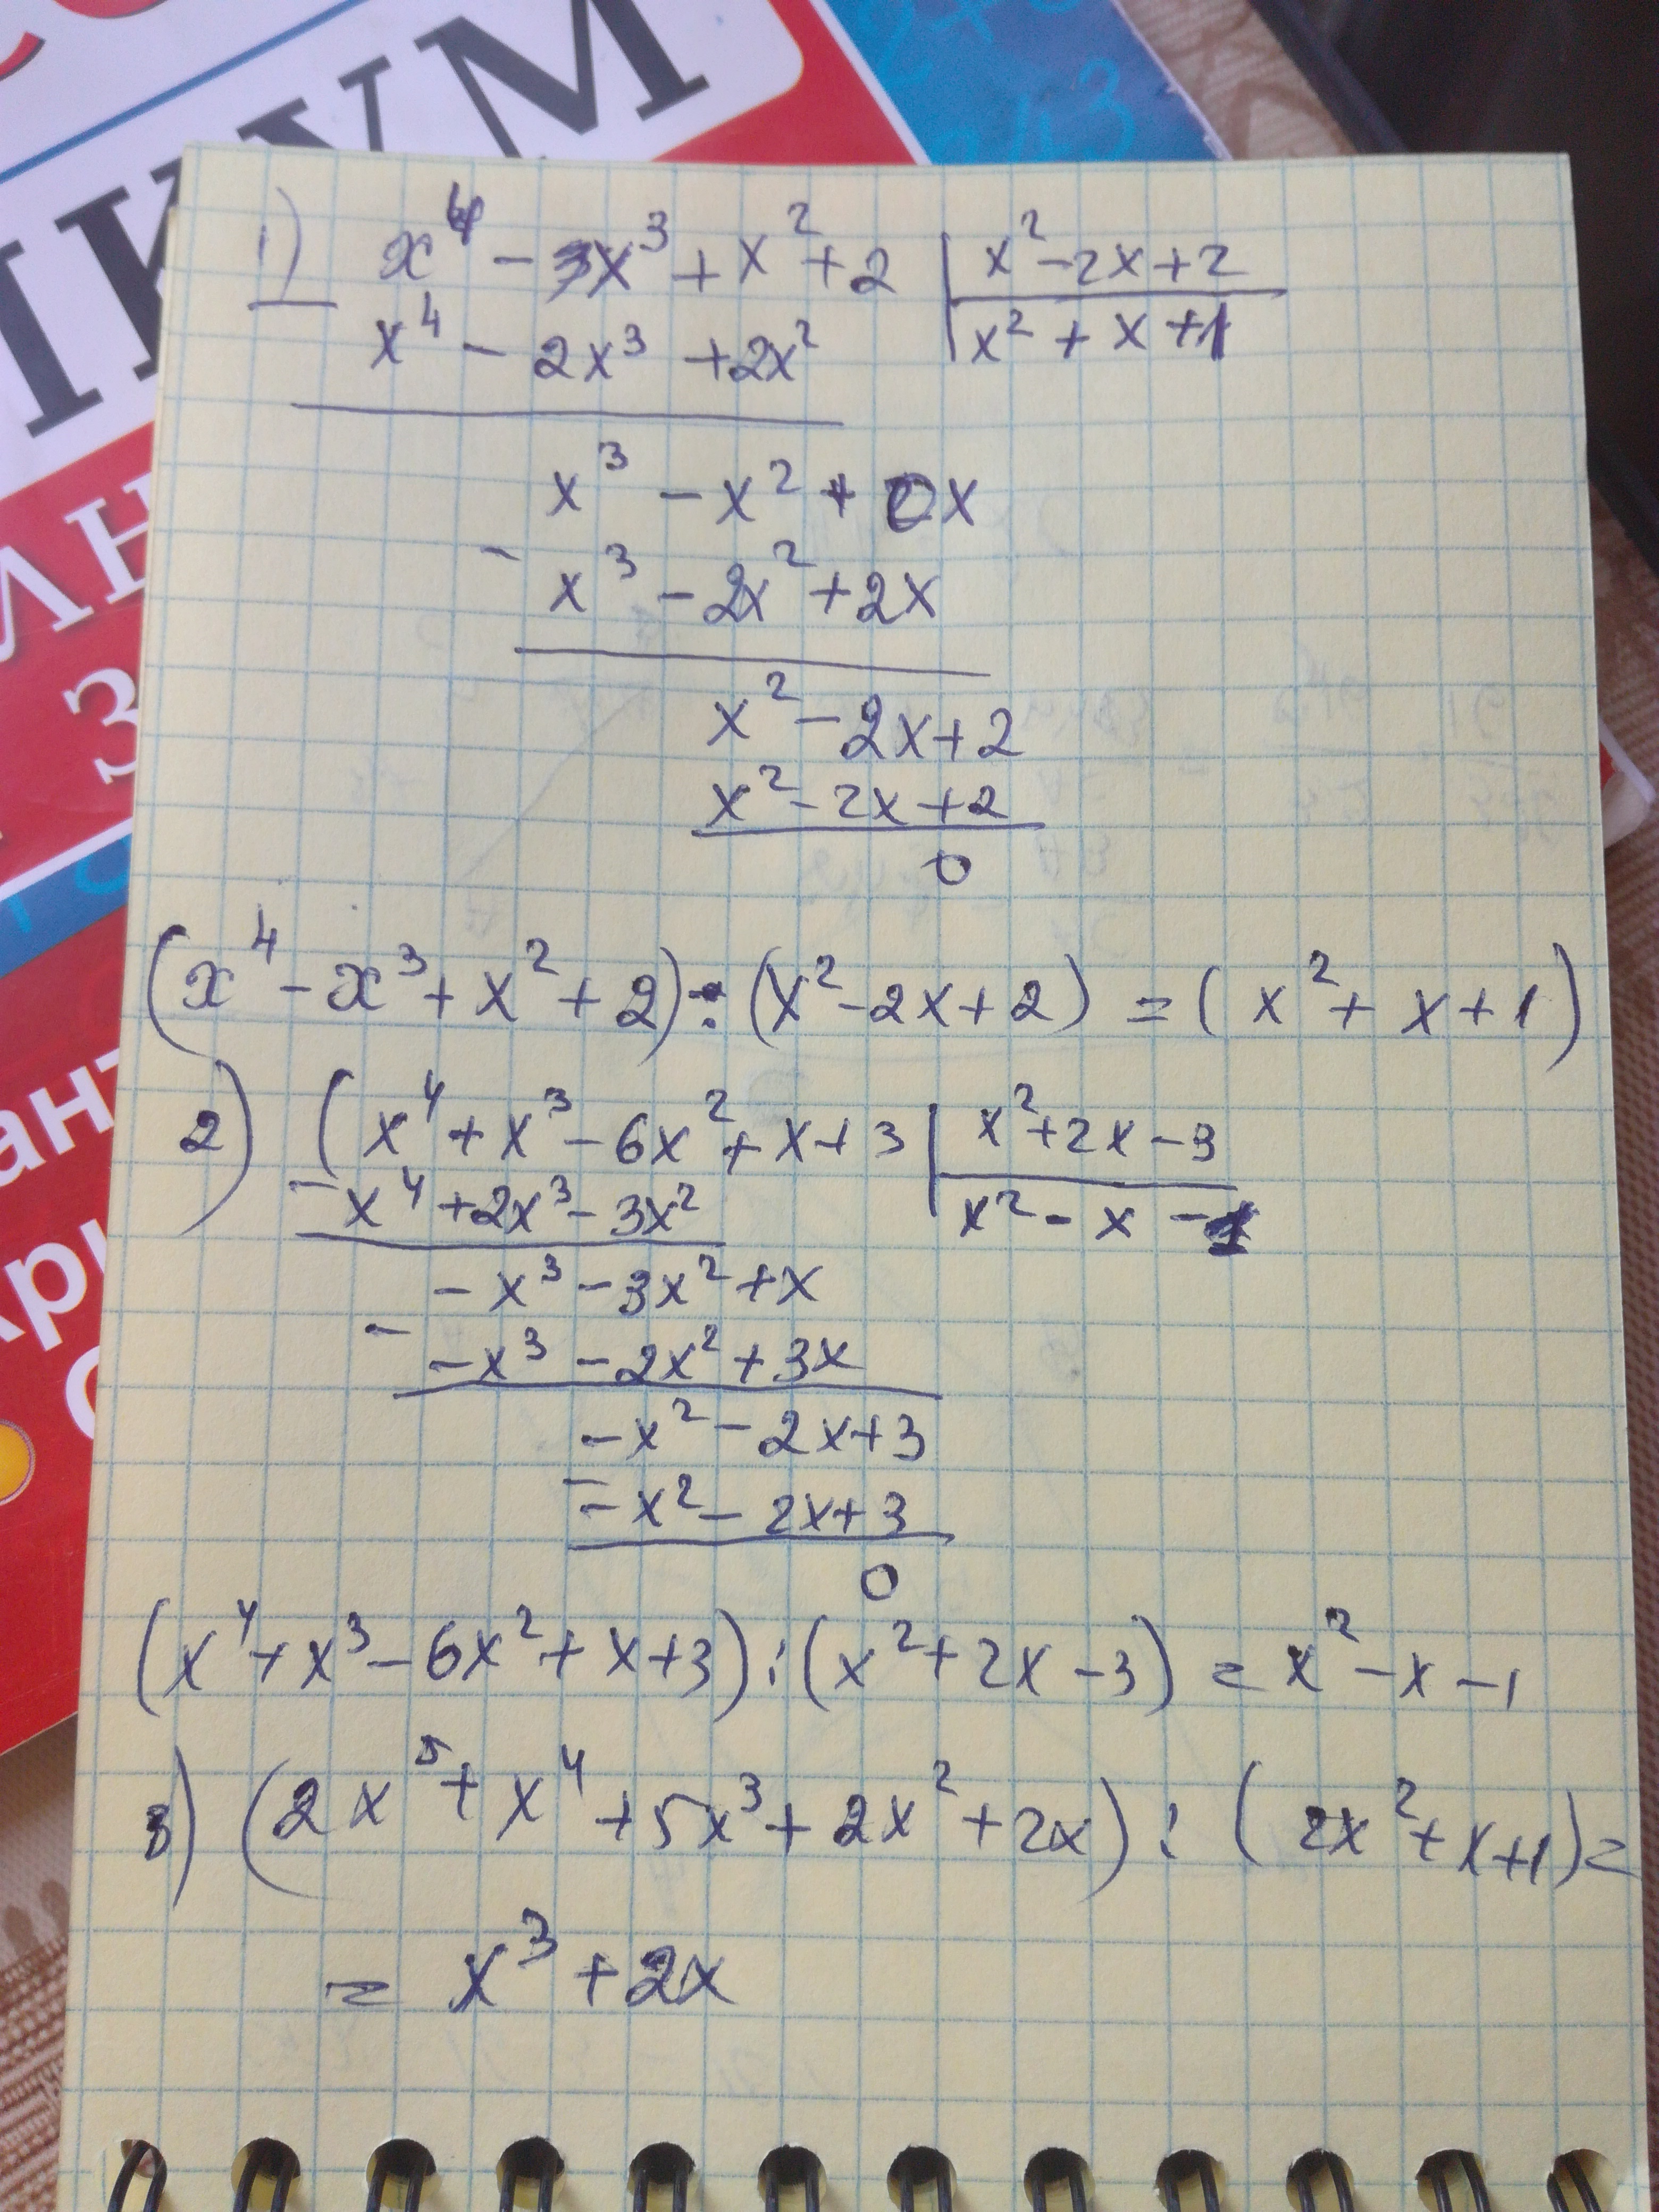 КУМ
1) x⁴ - 3x³ + x² + 2 | x² - 2x + 2
x⁴ - 2x³ + 2x² | x² + x + 1
x³ - x² + 0x
- x³ - 2x² + 2x
x² - 2x + 2
x² - 2x + 2
0
(x⁴ - x³ + x² + 2) : (x² - 2x + 2) = (x² + x + 1)
2) (x⁴ + x³ - 6x² + x + 3 | x² + 2x - 3
- x⁴ + 2x³ - 3x² | x² - x - 1
- x³ - 3x² + x
- - x³ - 2x² + 3x
- x² - 2x + 3
- - x² - 2x + 3
0
(x⁴ + x³ - 6x² + x + 3) : (x² + 2x - 3) = x² - x - 1
3) (2x⁵ + x⁴ + 5x³ + 2x² + 2x) : (2x² + x + 1) =
= x³ + 2x